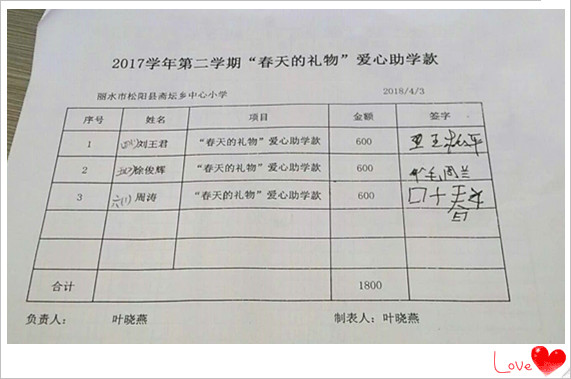 2017学年第二学期“春天的礼物”爱心助学款
丽水市松阳县斋坛乡中心小学 2018/4/3
序号 姓名 项目 金额 签字
1 刘王君 “春天的礼物”爱心助学款 600
2 徐俊辉 “春天的礼物”爱心助学款 600
3 六(1) 周涛 “春天的礼物”爱心助学款 600
合计 1800
负责人： 叶晓燕 制表人：叶晓燕
Love